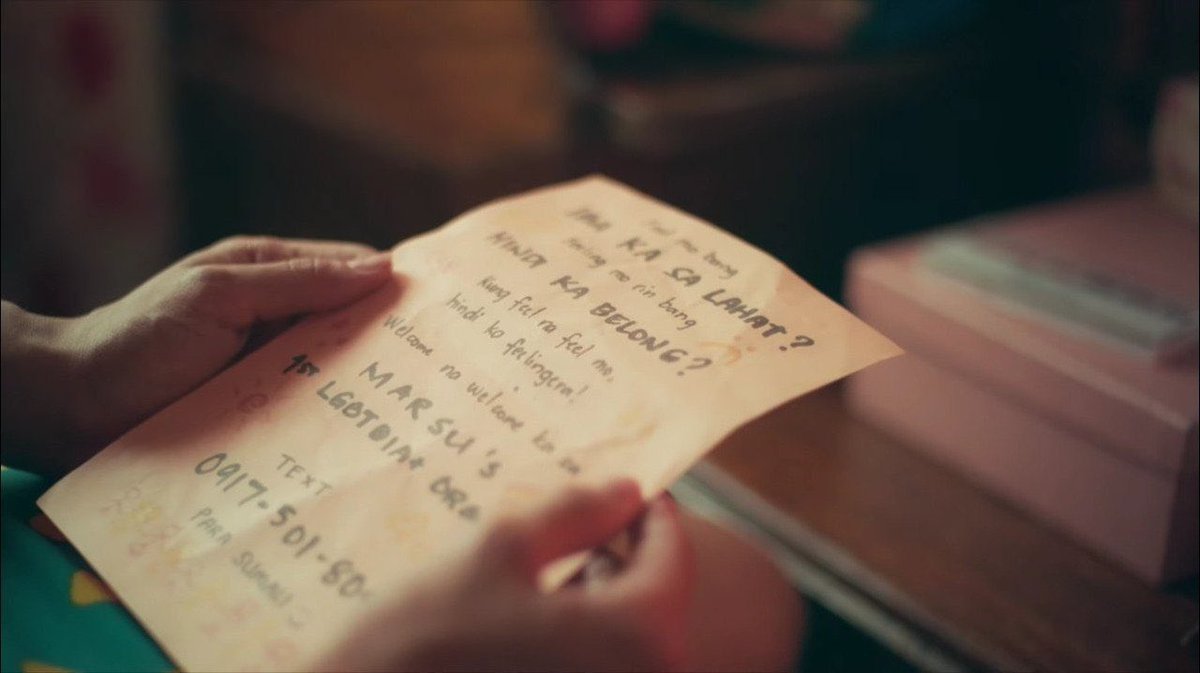 Feel mo bang
KA SA LAHAT?
Feeling mo rin bang
HINDI KA BELONG?
Kung feel na feel mo,
hindi ko feelingera!
Welcome na welcome ka sa
MARSU's
1ST LGBTQIA+ ORG
TEXT
0917-501-80
PARA SUMALI